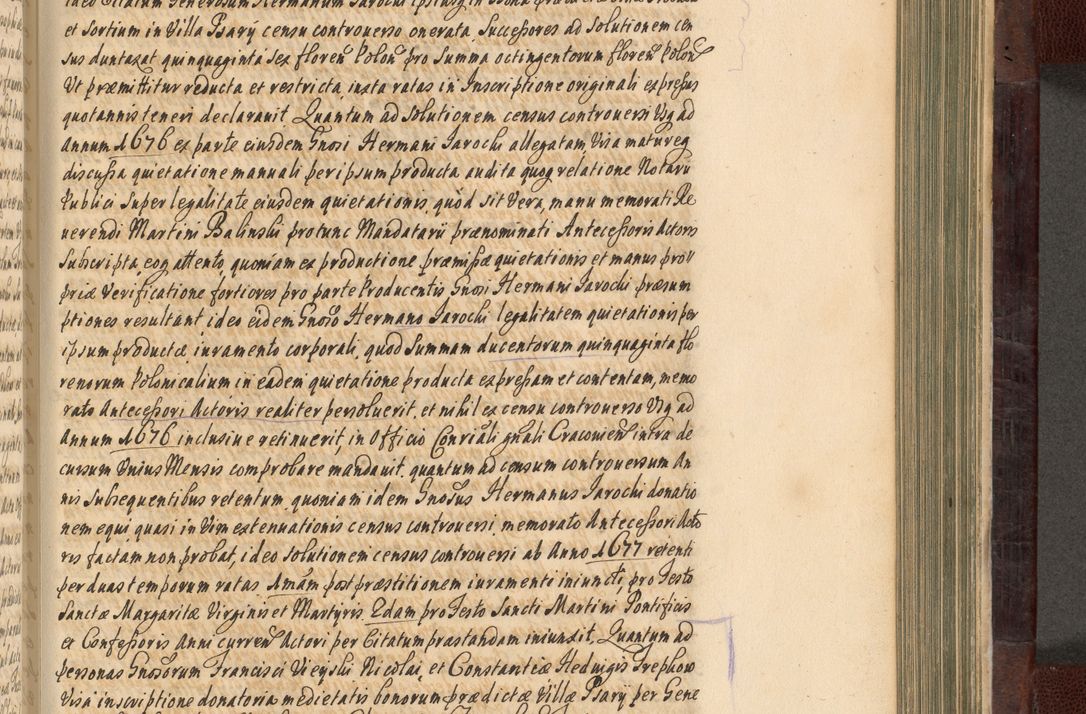 et Sortium in Villa Psary censu controverso onerata, Successores ad Solutionem cen
sus duntaxat quinquaginta sex floren Polon pro Summa octingentorum floren Polon
Ut præmittitur reducta et restricta, iuxta ratas in Inscriptione originali expressus
quotannis teneri declaravit Quantum ad Solutionem census controversi Usq ad
Annum 1676 ex parte eiusdem Gnosi Hermani Jarochi allegatam, Visa matureq
discussa quietatione manuali per ipsum producta audita quoq relatione Notarii
Publici Super legalitate eiusdem quietationis, quod sit Vera, manu memorati Re
verendi Martini Balinski protunc Mandatarii prænominati Antecessoris Actoris
Subscripta, eoq attento, quoniam ex productione præmissæ quietationis et manus pro
priæ Verificatione fortiores pro parte Producentis Gnosi Hermani Jarochi præsum
ptiones resultant ideo eidem Gnoso Hermano Jarochi legalitatem quietationis per
ipsum productæ iuramento corporali, quod Summam ducentorum quinquaginta flo
renorum Polonicalium in eadem quietatione producta expressam et contentam, memo
rato Antecessori Actoris realiter persoluerit, et nihil ex censu controverso Usq ad
Annum 1676 inclusive retinuerit, in Officio Consiali gnali Cracovien intra de
cursum Unius Mensis comprobare mandavit, quantum ad censum controversum An
nis Subsequentibus retentum, quoniam idem Gnosus Hermanus Jarochi donatio
nem equi quasi in Vim extenuationis census controversi, memorato Antecessori Acto
ris factam non probat, ideo Solutionem census controversi ab Anno 1677 retenti
per duas temporum ratas 1mam post præstitionem iuramenti iniuncti, pro Festo
Sanctæ Margaritæ Virginis et Martyris 2dam pro Festo Sancti Martini Pontificis
et Confessoris Anni curren Actori per Citatum præstandam iniunxit. Quantum ad
personas Gnosorum Francisci Vieyski Nicolai, et Constantiæ Heduigis
Visa inscriptione donatoria medietatis bonorum prædictæ Villæ Psary per Gene